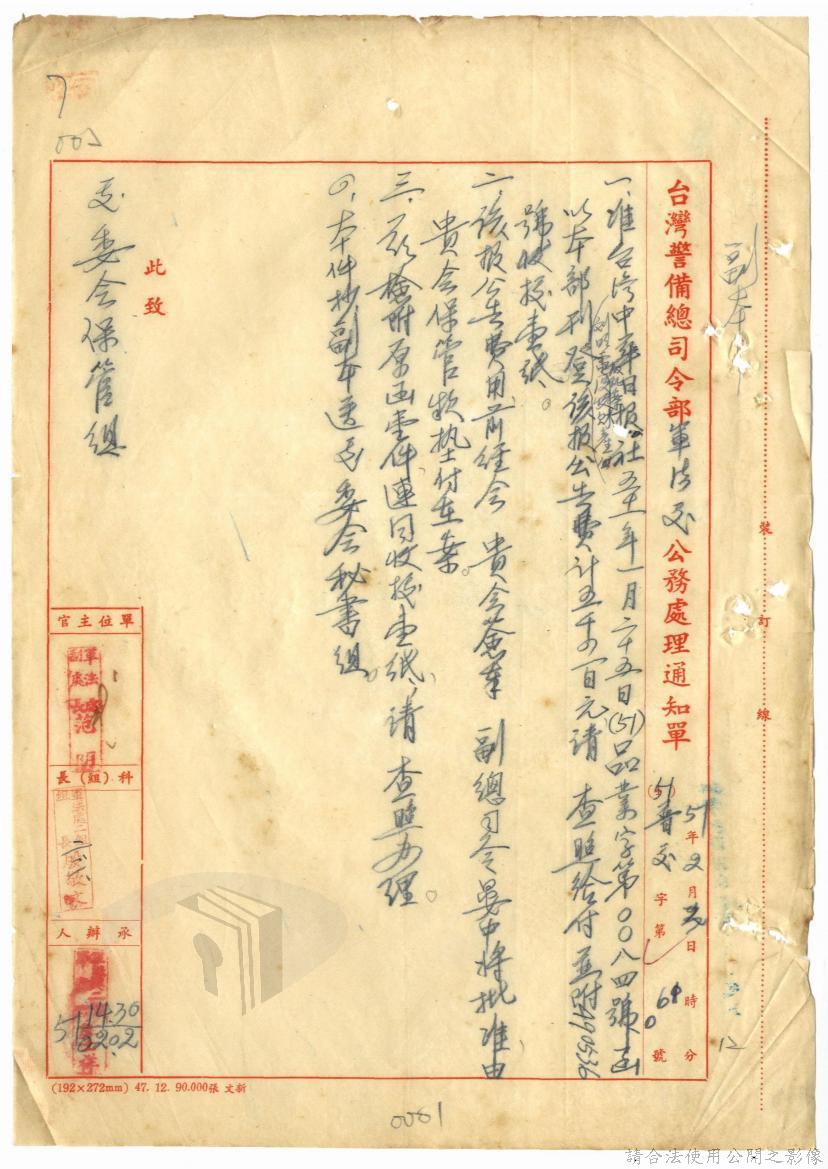 副本
裝訂線
台灣警備總司令部軍法處公務處理通知單
51年2月 日 時 分
(51)普 字第 號
一、准台灣中華日報社五十一年一月二十五日(51)品業字第００八四號函
以本部刊登該報公告費計五千 百元請 查照給付並附490536
號收据壹紙。
二、該報公告費用前經會 貴會簽奉 副總司令晏中將批准由
貴會保管款墊付在案。
三、茲檢附原函壹件連同收据壹紙,請 查照辦理。
四、本件抄副本送 委會秘書組。
此致
委會保管組
單位主官
軍法處
副處長范明
科(組)長
承辦人
14.30
51 0202
(192×272mm) 47. 12. 90.000張 文新
7
002
12
0061
請合法使用公開之影像